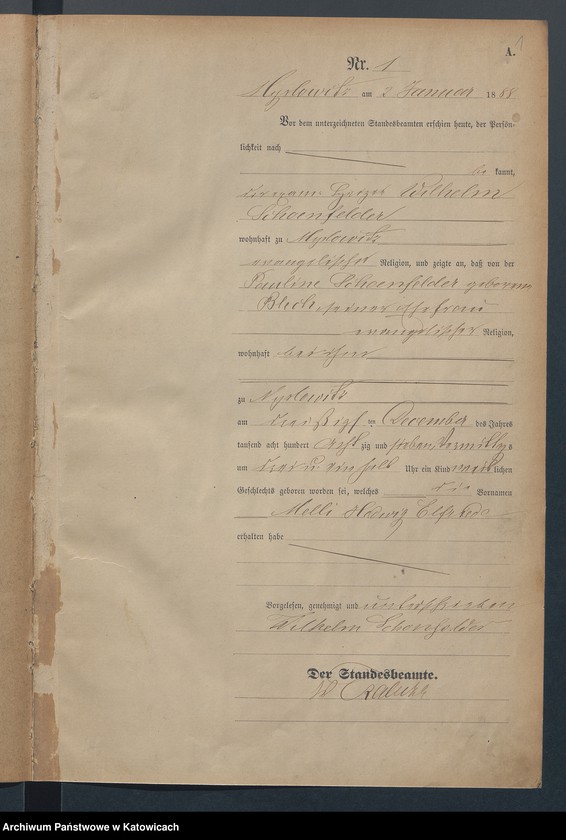 A.
1
Nr. 1
Myslowitz am 2 Januar 1888
Vor dem unterzeichneten Standesbeamten erschien heute, der Persön-
lichkeit nach
be kannt,
Wilhelm
Schoenfelder
wohnhaft zu Myslowitz
evangelischer Religion, und zeigte an, daß von der
Pauline Schoenfelder geborenen
Blech, seiner Ehefrau
evangelischer Religion,
wohnhaft bei ihm
zu Myslowitz
am dreißigsten December des Jahres
tausend acht hundert achtzig und sieben, Vormittags
um drei u ein halb Uhr ein Kind weiblichen
Geschlechts geboren worden sei, welches die Vornamen
Melli Hedwig Elfriede
erhalten habe
Vorgelesen, genehmigt und unterschrieben
Wilhelm Schoenfelder
Der Standesbeamte.
Archiwum Państwowe w Katowicach